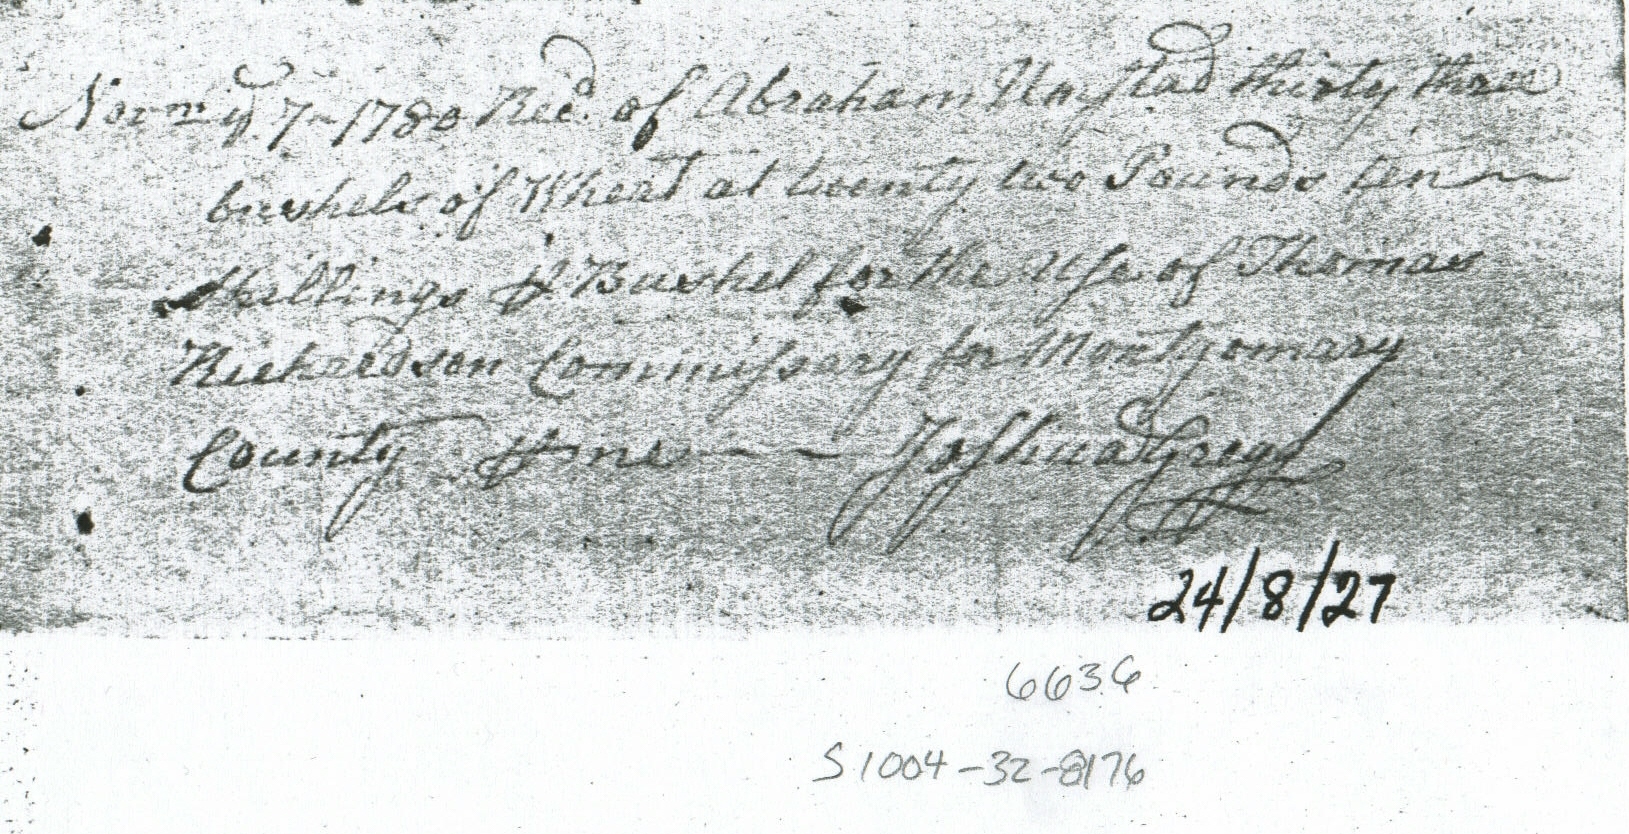 Novm ye. 7 - 1780 Recd. of Abraham Umstad thirty three
bushels of Wheat at twenty two Pounds ten
Shillings ⅌ Bushel for the Use of Thomas
Richardson Commissary for Montgomary
County ⅌ me - - Joshua Gregg
24/8/27
6636
S1004-32-8176